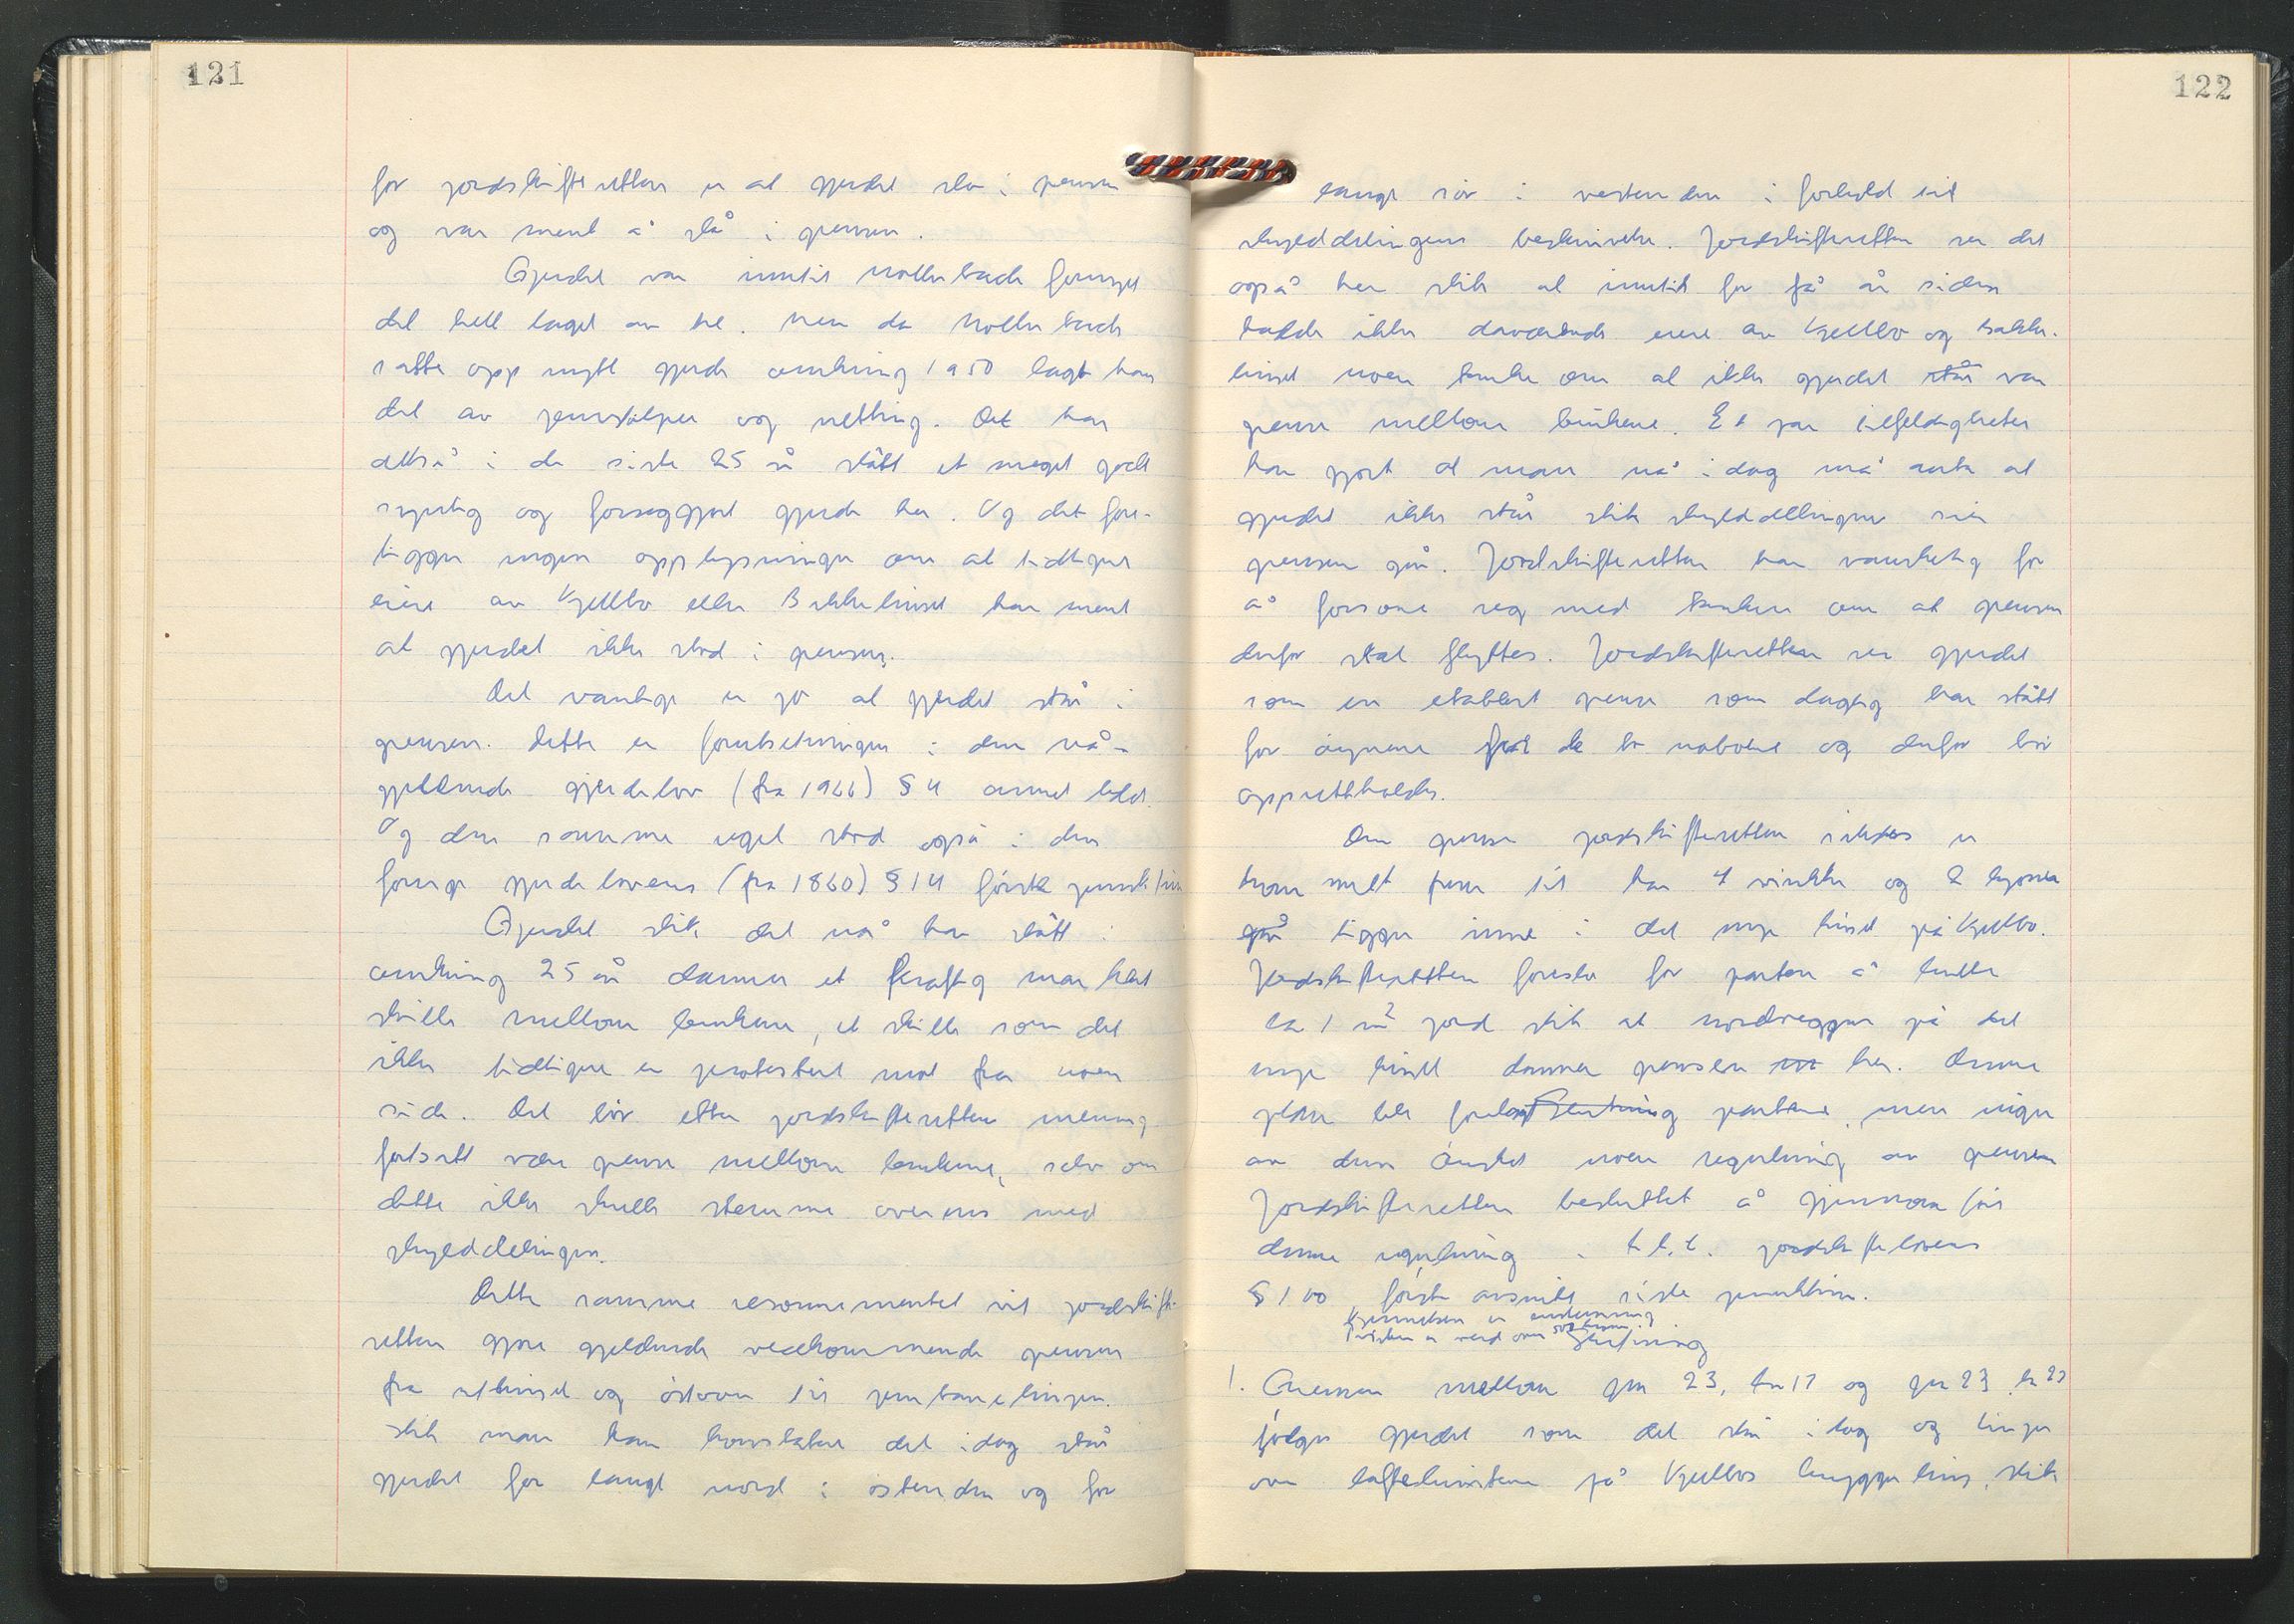 121
for jordskifteretten er at gjerdet sto i grensen
og var ment å stå i grensen.
Gjerdet var inntil Mollerbach fornyet
det helt laget av tre. Men da Mollerbach
satte opp nytt gjerde omkring 1950 laget han
det av jernstolper og netting. Det har
altså i de siste 25 år stått et meget godt
synlig og forseggjort gjerde her. Og det fore-
ligger ingen opplysninger om at tidligere
eiere av Kjellbo eller Bakkehuset har ment
at gjerdet ikke stod i grensen.
Det vanlige er jo at gjerdet står i
grensen. Dette er forutsetningen i den nå-
gjeldende gjerdelov (fra 1966) § 4 annet ledd.
Og den samme regel stod også i den
forrige gjerdelovens (fra 1860) § 14 første punktum
Gjerdet slik det nå har stått i
omkring 25 år danner et kraftig markert
skille mellom brukene, et skille som det
ikke tidligere er protestert mot fra noen
side. Det bør etter jordskifterettens mening
fortsatt være grense mellom brukene, selv om
dette ikke skulle stemme overens med
skylddelingen.
Dette samme resonnementet vil jordskifte-
retten gjøre gjeldende vedkommende grensen
fra uthuset og østover til jernbanelinjen.
Slik man kan konstatere det idag står
gjerdet for langt nord i østenden og for
122
langt sør i vestenden i forhold til
skylddelingens beskrivelse. Jordskifteretten ser det
også her slik at inntil for få år siden
hadde ikke daværende eiere av Kjellbo og Bakke-
huset noen tanke om at ikke gjerdet står var
grense mellom brukene. Et par tilfeldigheter
har gjort at man nå i dag må anta at
gjerdet ikke står slik skylddelingen sier
grensen går. Jordskifteretten har vanskelig for
å forsone seg med tanken om at grensen
derfor skal flyttes. Jordskifteretten ser gjerdet
som en etablert grense som daglig har stått
for øynene på de to naboene og derfor bør
opprettholdes.
Den grense jordskifteretten
fram til har 4 vinkler og
går ligger inne i det nye huset på Kjellbo.
Jordskifteretten foreslo for partene å bytte
ca 1 m² jord slik at nordveggen på det
nye huset danner grensen her. Denne
plan ble forelagt Slutning partene, men ingen
av dem ønsket noen regulering av grensen
Jordskifteretten besluttet å gjennomføre
denne regulering i h.t. jordskiftelovens
§ 100 første avsnitt siste punktum.
Kjennelsen er enstemmig
Slutning
1. Grensen mellom gnr 23, bnr 17 og gnr 23, bnr 27
følger gjerdet som det står i dag og linjen
over på Kjellbos bryggerhus, slik